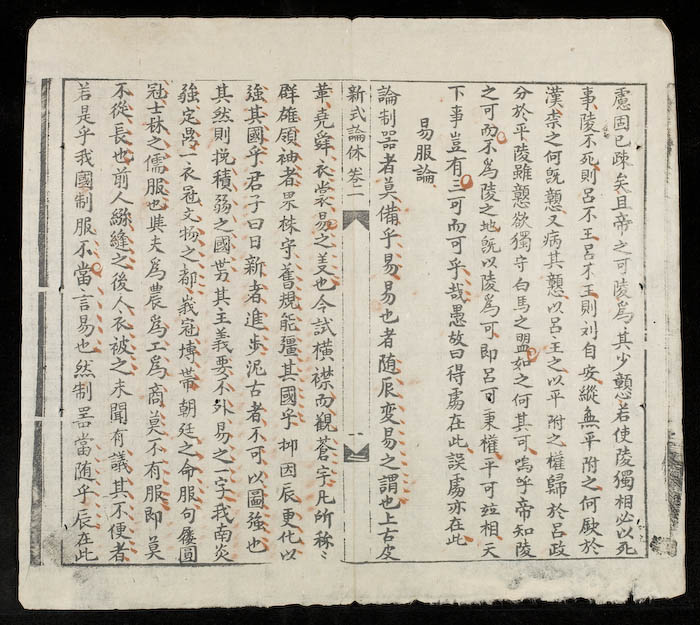 慮固已疎矣且帝之可陵爲其少戇若使陵獨相必以死
事陵不死則呂不王呂不王則刘自安縱無平附之何厥於
漢柰之何旣戇又病其戇以呂主之以平附之權歸於呂政
分於平陵雖戇欲獨守白馬之盟如之何其可嗚乎帝知陵
之可而不爲陵之地旣以陵爲可即呂可秉權平可竝相天
下事豈有三可而可乎哉愚故曰得處在此誤處亦在此
易服論
論制器者莫備乎易易也者随辰变易之謂也上古皮
新式論体卷二
一
革堯舜衣裳易之羙也今試橫襟而觀蒼宇凡所称〻
群雄領袖者果株守舊規能彊其國乎抑因辰更化以
強其國乎君子曰日新者進步泥古者不可以圖強也
其然則挽積弱之國势其主義要不外易之一字我南炎
強定爲一衣冠文物之都峩冠博帶朝廷之命服句屨圓
冠士林之儒服也與夫爲農爲工爲商莫不有服即莫
不從長也前人縧縫之後人衣被之未聞有議其不便者
若是乎我國制服不當言易也然制器當随乎辰在此